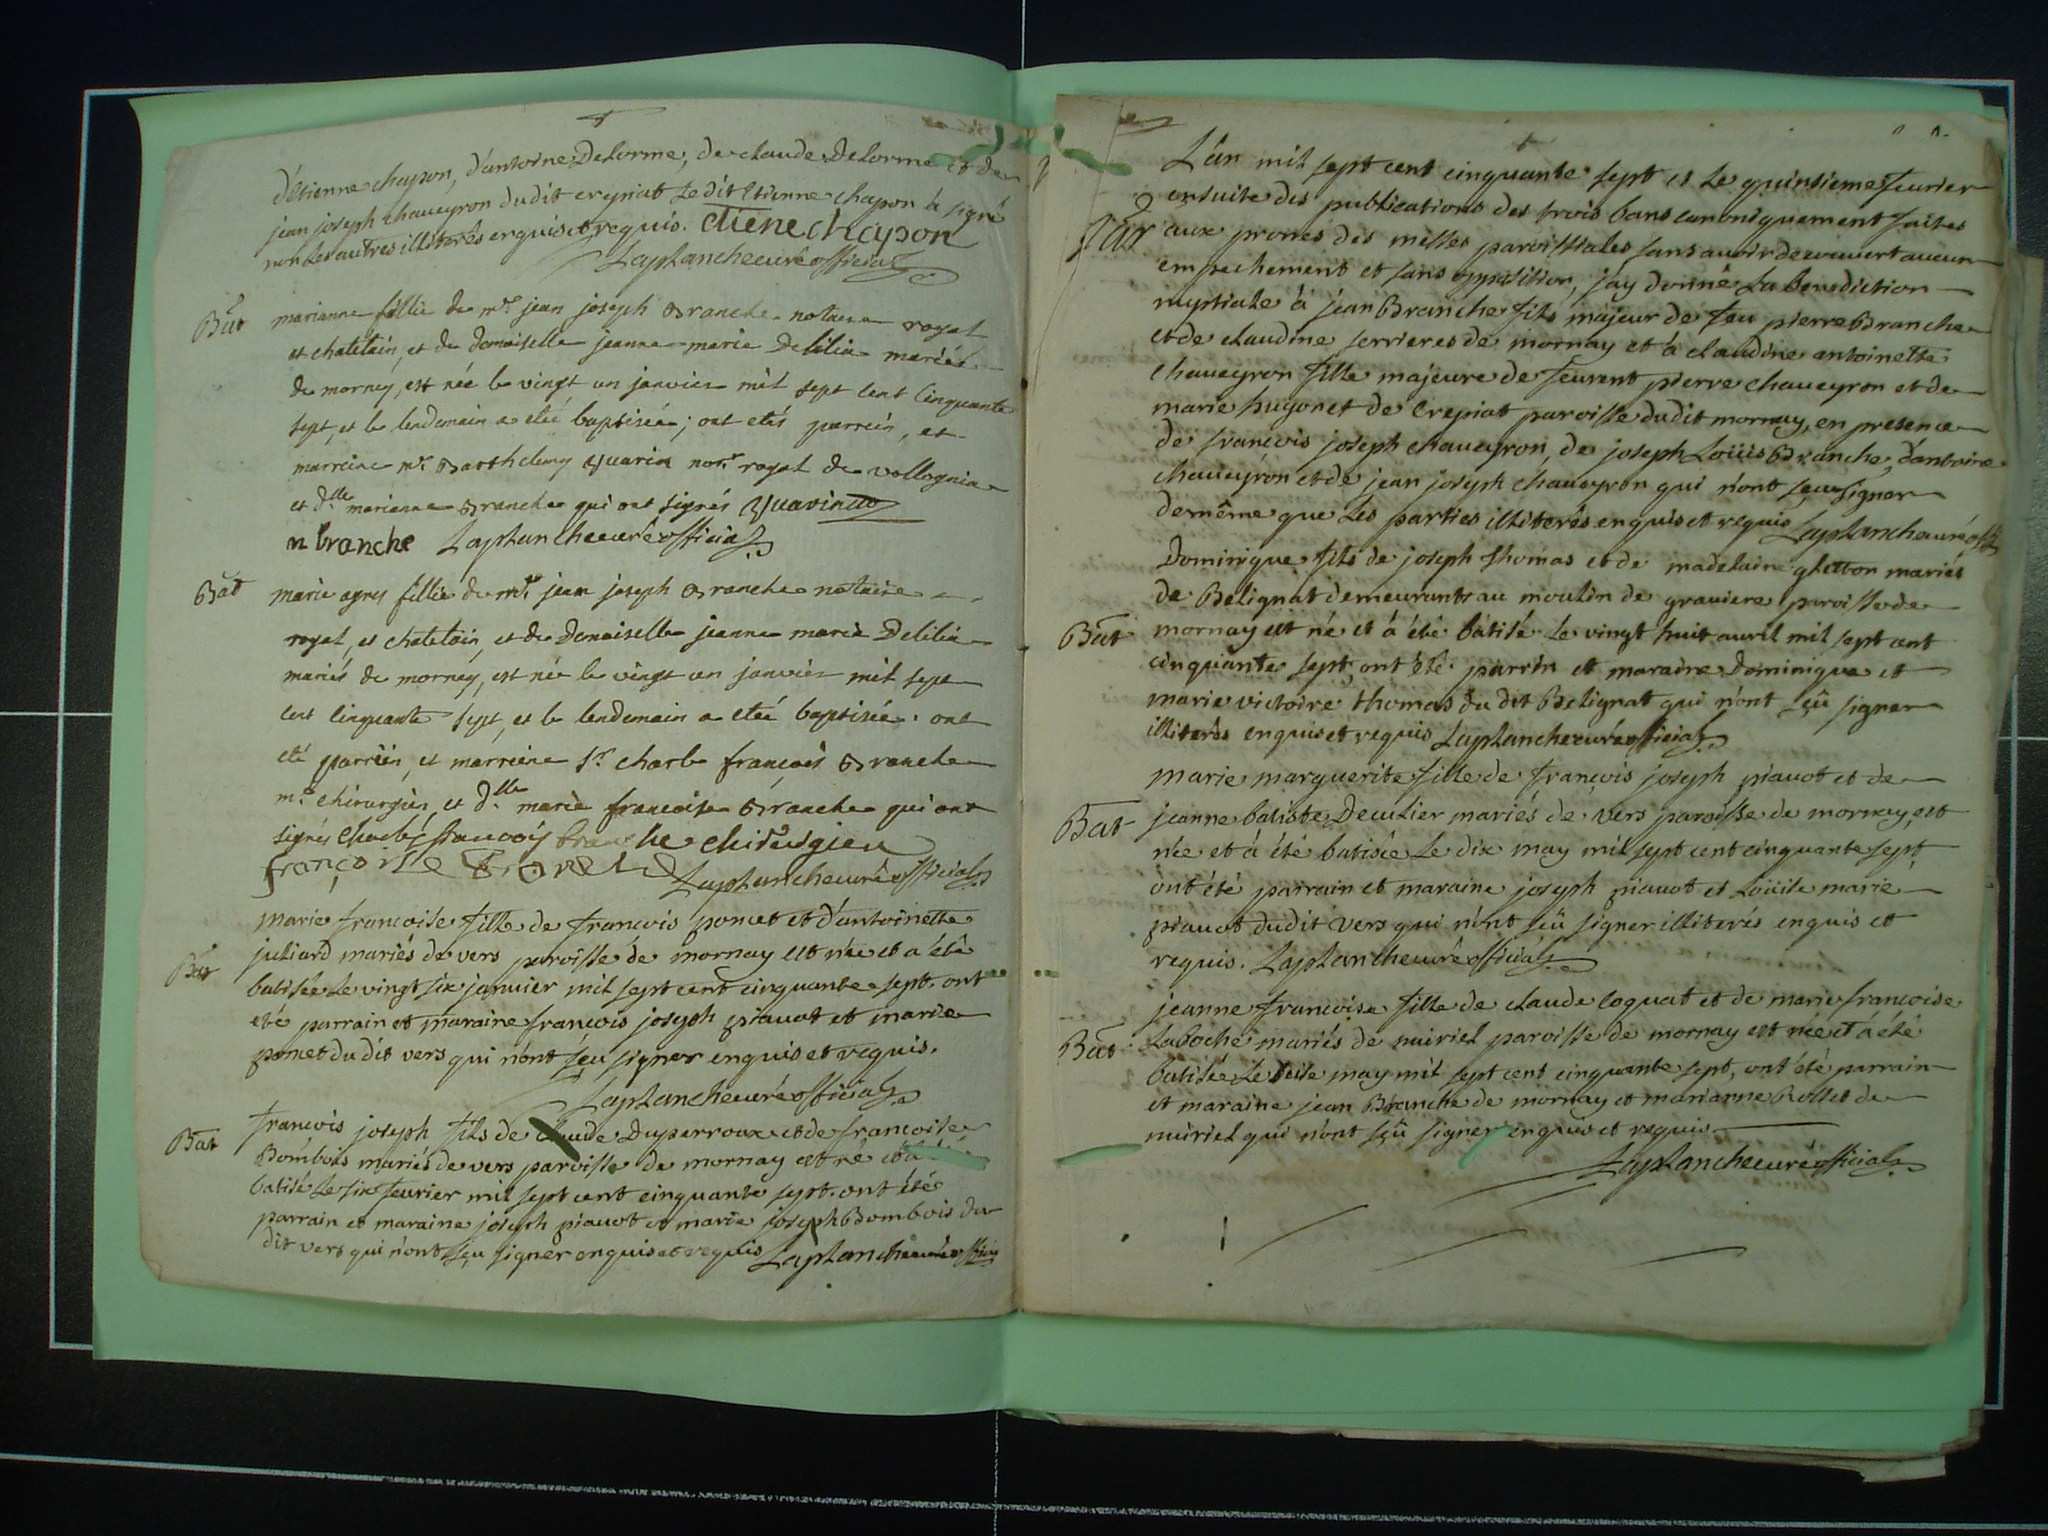 d'étienne chapon, d'antoine Delorme, de claude Delorme et de
jean joseph chaveyron dudit crepiat Le dit Etienne chapon à signé
non Les autres illiterés enquis et requis. etiene chapon
Laplanche curé official
Bat marianne fillie de mr. jean joseph Branche notaire royal
et chatelain, et de demoiselle jeanne marie Delilia mariés
de mornay, est née le vingt un janvier mil sept cent cinquante
sept, et le lendemain a eteé baptisée; ont etés parrein, et
marreine mr. Barthelemy Quarin nore. royal de vollognia
et dlle marianne Branche qui ont signés Quarin
m branche Laplanche curé official
Bat marie agnes fillie de mr. jean joseph Branche notaire
royal, et chatelain, et de Demoiselle jeanne marie Delilia
mariés de mornay, est née le vingt un janvier mil sept
cent cinquante sept, et le lendemain a eteé baptisée. ont
eté parrein, et marreine sr. charle françois Branche
me. chirurgien, et dlle. marie francoise Branche qui ont
signés charles francois branche chirurgien
françoise Branche Laplanche curé official
Bat marie francoise fille de francois poncet et d'antoinette
juliard mariés de vers paroisse de mornay est née et a été
batisée Le vingt six janvier mil sept cent cinquante sept. ont
été parrain et maraine francois joseph piavot et marie
poncet du dit vers qui n'ont sçeu signer enquis et requis.
Laplanche curé official
Bat francois joseph fils de claude Duperroux et de francoise
Bombois mariés de vers paroisse de mornay est né et à été
batisé Le six fevrier mil sept cent cinquante sept. ont été
parrain et maraine joseph piavot et marie joseph Bombois du
dit vers qui n'ont sçu signer enquis et requis Laplanche curé official
L'an mil sept cent cinquante sept et Le quinsieme fevrier
ensuite des publications des trois bans canoniquement faites
Mar aux prones des messes paroissiales sans avoir decouvert aucun
empechement et sans opposition, j'ay donné La benediction
nuptiale à jean Branche fils majeur de feu pierre Branche
et de claudine serrieres de mornay et à claudine antoinette
chaveyron fille majeure de feurent pierre chaveyron et de
marie hugonet de Crepiat paroisse dudit mornay, en presence
de francois joseph chaveyron, de joseph Loüis Branche, d'antoine
chaveyron et de jean joseph chaveyron qui n'ont sçeu signer
de même que Les parties illiterés enquis et requis Laplanche curé off.
Dominique fils de joseph thomas et de madelaine gletton mariés
de Belignat demeurants au moulin de graviere paroisse de
Bat mornay est né et á été batisé Le vingt huit avril mil sept cent
cinquante sept, ont été parrin et maraine Dominique et
marie victoire thomas du dit Belignat qui n'ont sçû signer
illiterés enquis et requis Laplanche curé official
marie marguerite fille de françois joseph piavot et de
Bat jeanne batiste Decutier mariés de vers paroisse de mornay, est
née et á été batisée Le dix may mil sept cent cinquante sept
ont été parrain et maraine joseph piavot et Loüise marie
piavot dudit vers qui n'ont sçû signer illiterés enquis et
requis. Laplanche curé official
jeanne francoise fille de claude coquat et de marie francoise
Bat Laboché mariés de nuiriel paroisse de mornay est née et à été
batisée Le seise may mil sept cent cinquante sept, ont été parrain
et maraine jean Branche de mornay et marianne Rosset de
nuiriel qui n'ont sçû signer enquis et requis
Laplanche curé official